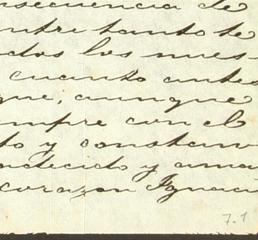 nsecuencia de
ntre tanto te
dos los nues-
cuanto antes
que, aunque
empre con el
to y constan
adecido y ama
corazon Ignaci
7.1